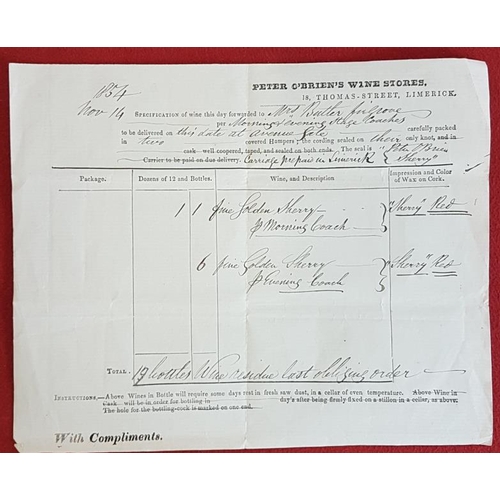 PETER O'BRIEN'S WINE STORES,
1854
18, THOMAS-STREET, LIMERICK.
Nov 14 SPECIFICATION of wine this day forwarded to Mrs Butler
per Morning & Evening Stage Coaches
to be delivered on this date at Avenue Gate carefully packed
in two covered Hampers; the cording sealed on their only knot, and in
cask well coopered, taped, and sealed on both ends. The seal is "Peter O'Brien
Carrier to be paid on due delivery. Carriage prepaid in Limerick Sherry"
Package. Dozens of 12 and Bottles. Wine, and Description Impression and Color of Wax on Cork.
1 1 fine Golden Sherry "Sherry" Red
p Morning Coach
6 fine Golden Sherry "Sherry" Red
p Evening Coach
TOTAL. 19 bottles Wine residue last obliging order
INSTRUCTIONS,—Above Wines in Bottle will require some days rest in fresh saw dust, in a cellar of even temperature. Above Wine in
Cask will be in order for bottling in day's after being firmly fixed on a stillion in a cellar, as above.
The hole for the bottling-cock is marked on one end.
With Compliments.